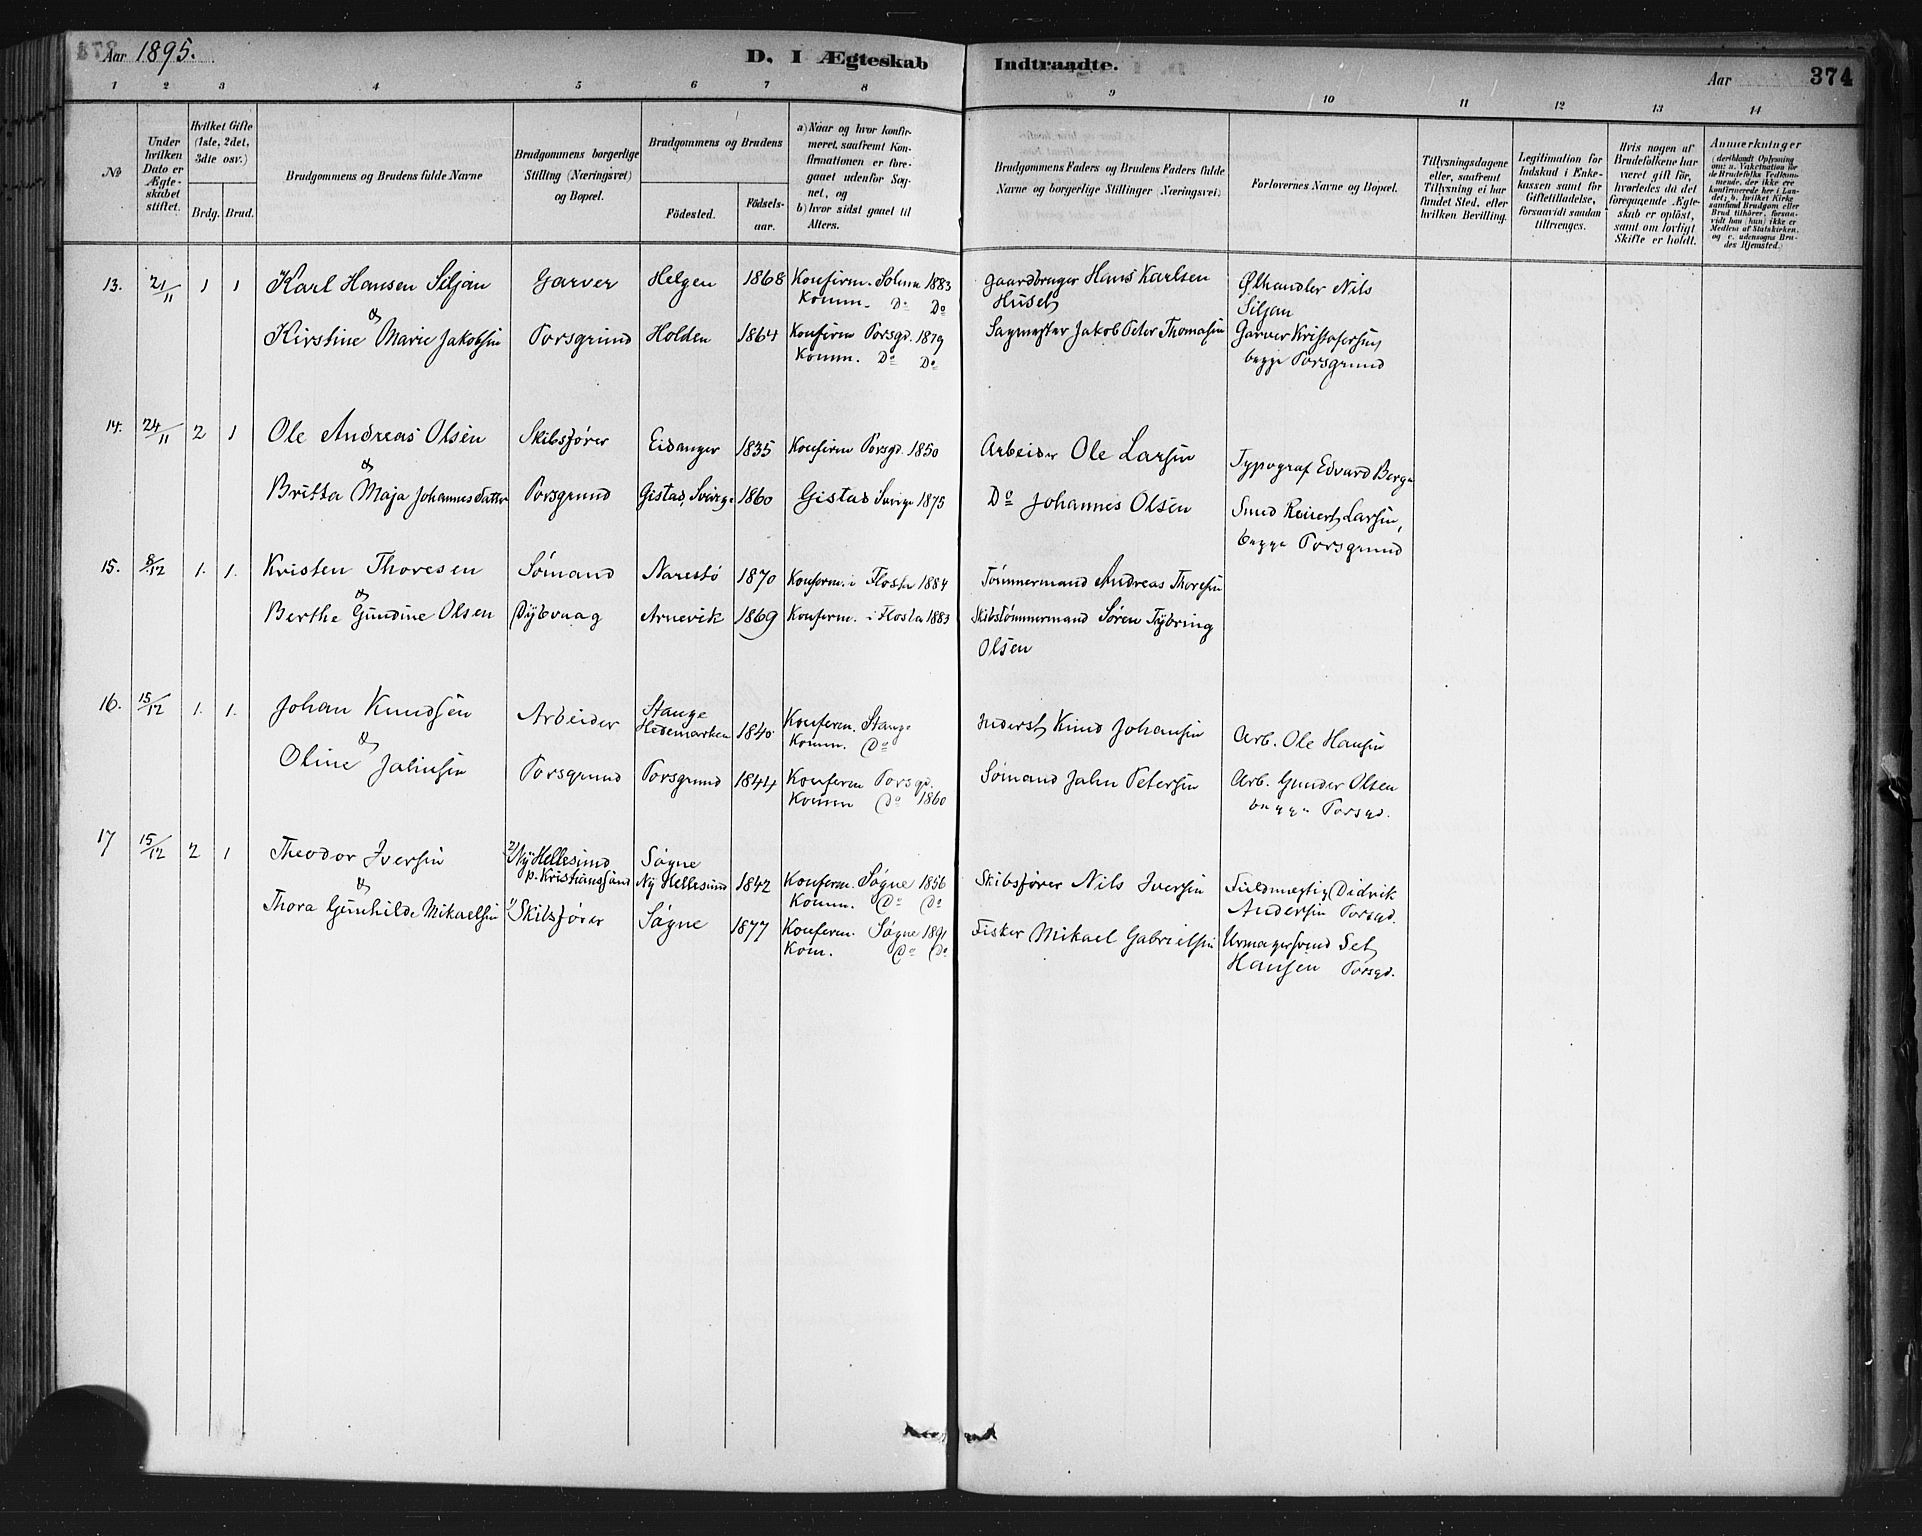 Aar 1895.
D. I Ægteskab Indtraadte.
Aar 374
1 2 3 4 5 6 7 8 9 10 11 12 13 14
No
Under hvilken Dato er Ægteskabet stiftet.
Hvilket Gifte (1ste, 2det, 3die osv.)
Brdg. Brud.
Brudgommens og Brudens fulde Navne
Brudgommens borgerlige Stilling (Næringsvei) og Bopæl.
Brudgommens og Brudens
Födested.
Födsels-aar.
a) Naar og hvor konfirmeret, saafremt Konfirmationen er foregaaet udenfor Sognet, og
b) hvor sidst gaaet til Alters.
Brudgommens Faders og Brudens Faders fulde Navne og borgerlige Stillinger (Næringsvei).
Forlovernes Navne og Bopæl.
Tillysningsdagene eller, saafremt Tillysning ei har fundet Sted, efter hvilken Bevilling.
Legitimation for Indskud i Enkekassen samt for Giftetilladelse, forsaavidt saadan tiltrænges.
Hvis nogen af Brudefolkene har været gift før, hvorledes da det foregaaende Ægteskab er oplöst, samt om lovligt Skifte er holdt.
Anmærkninger
13. 21/11 1 1 Karl Hansen Siljan Garver Helgen 1868 Konfirm. Solum 1883 Gaardbruger Hans Karlsen Ølhandler Nils
Komm. Do Do Huset Siljan
&
Kirstine Marie Jakobsen Porsgrund Holden 1864 Konfirm Porsgd. 1879 Sagmester Jakob Peter Thomasen Garver Kristofersen,
Komm. Do Do begge Porsgrund
14. 24/11 2 1 Ole Andreas Olsen Skibsfører Eidanger 1835 Konfirm Porsgd. 1850 Arbeider Ole Larsen Typograf Edvard Berge
&
Britta Maja Johannesdatter Porsgrund Gistad, Sverige 1860 Gistad Sverige 1875 Do Johannes Olsen Smed Reinert Larsen,
begge Porsgrund
15. 8/12 1. 1. Kristen Thoresen Sømand Narestø 1870 Konferm. i Flosta 1884 Tømmermand Andreas Thoresen
&
Berthe Gundine Olsen Dybvaag Arnevik 1869 Konferm. i Flosta 1883 Skibstømmermand Søren Tybring
Olsen
16. 15/12 1. 1. Johan Knudsen Arbeider Stange Hedemarken 1840 Konferm. Stange Inderst Knud Johansen Arb. Ole Hansen
Komm. Do
&
Oline Jahnsen Porsgrund Porsgrund 1844 Konferm Porsgd. Sømand Jahn Petersen Arb. Gunder Olsen
Komm Do 1860 begge Porsgd.
17 15/12 2 1 Theodor Iversen 2) Ny Hellesund Søgne
p. Kristianssand Ny Hellesund 1842 Konferm. Søgne 1856 Skibsfører Nils Iversen Fuldmegtig Didrik
Komm. Do Do Andersen Porsgd.
&
Thora Gunhilde Mikaelsen 1) Skibsfører Søgne 1877 Konferm. Søgne 1891 Fisker Mikael Gabrielsen Urmagersvend Set
Kom. Do Do Hansen Porsgd.